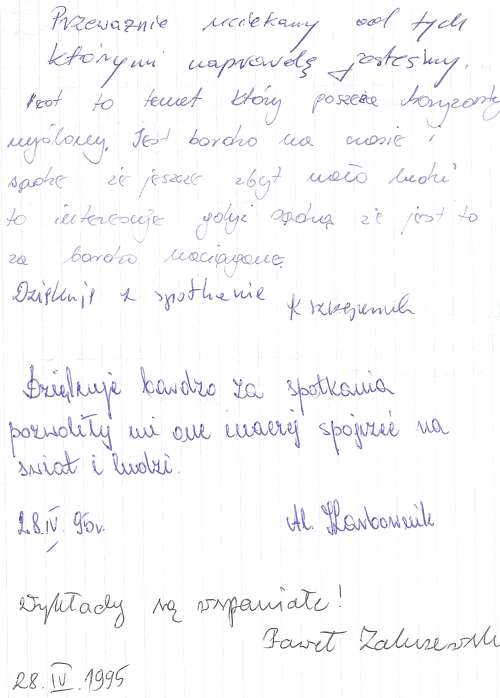 Przeważnie uciekamy od tych
którymi naprawdę jesteśmy.
Jest to temat który poszerza horyzonty
myślowy. Jest bardzo na czasie i
sądzę że jeszcze zbyt mało ludzi
to interesuje gdyż sądzą że jest to
za bardzo naciągane
Dziękuję z spotkanie K
Dziękuje bardzo za spotkania
pozwoliły mi one inaczej spojrzeć na
świat i ludzi.
28.IV. 95r. Al. Karbownik
Wykłady są wspaniałe!
Paweł Zaluzewski
28.IV.1995